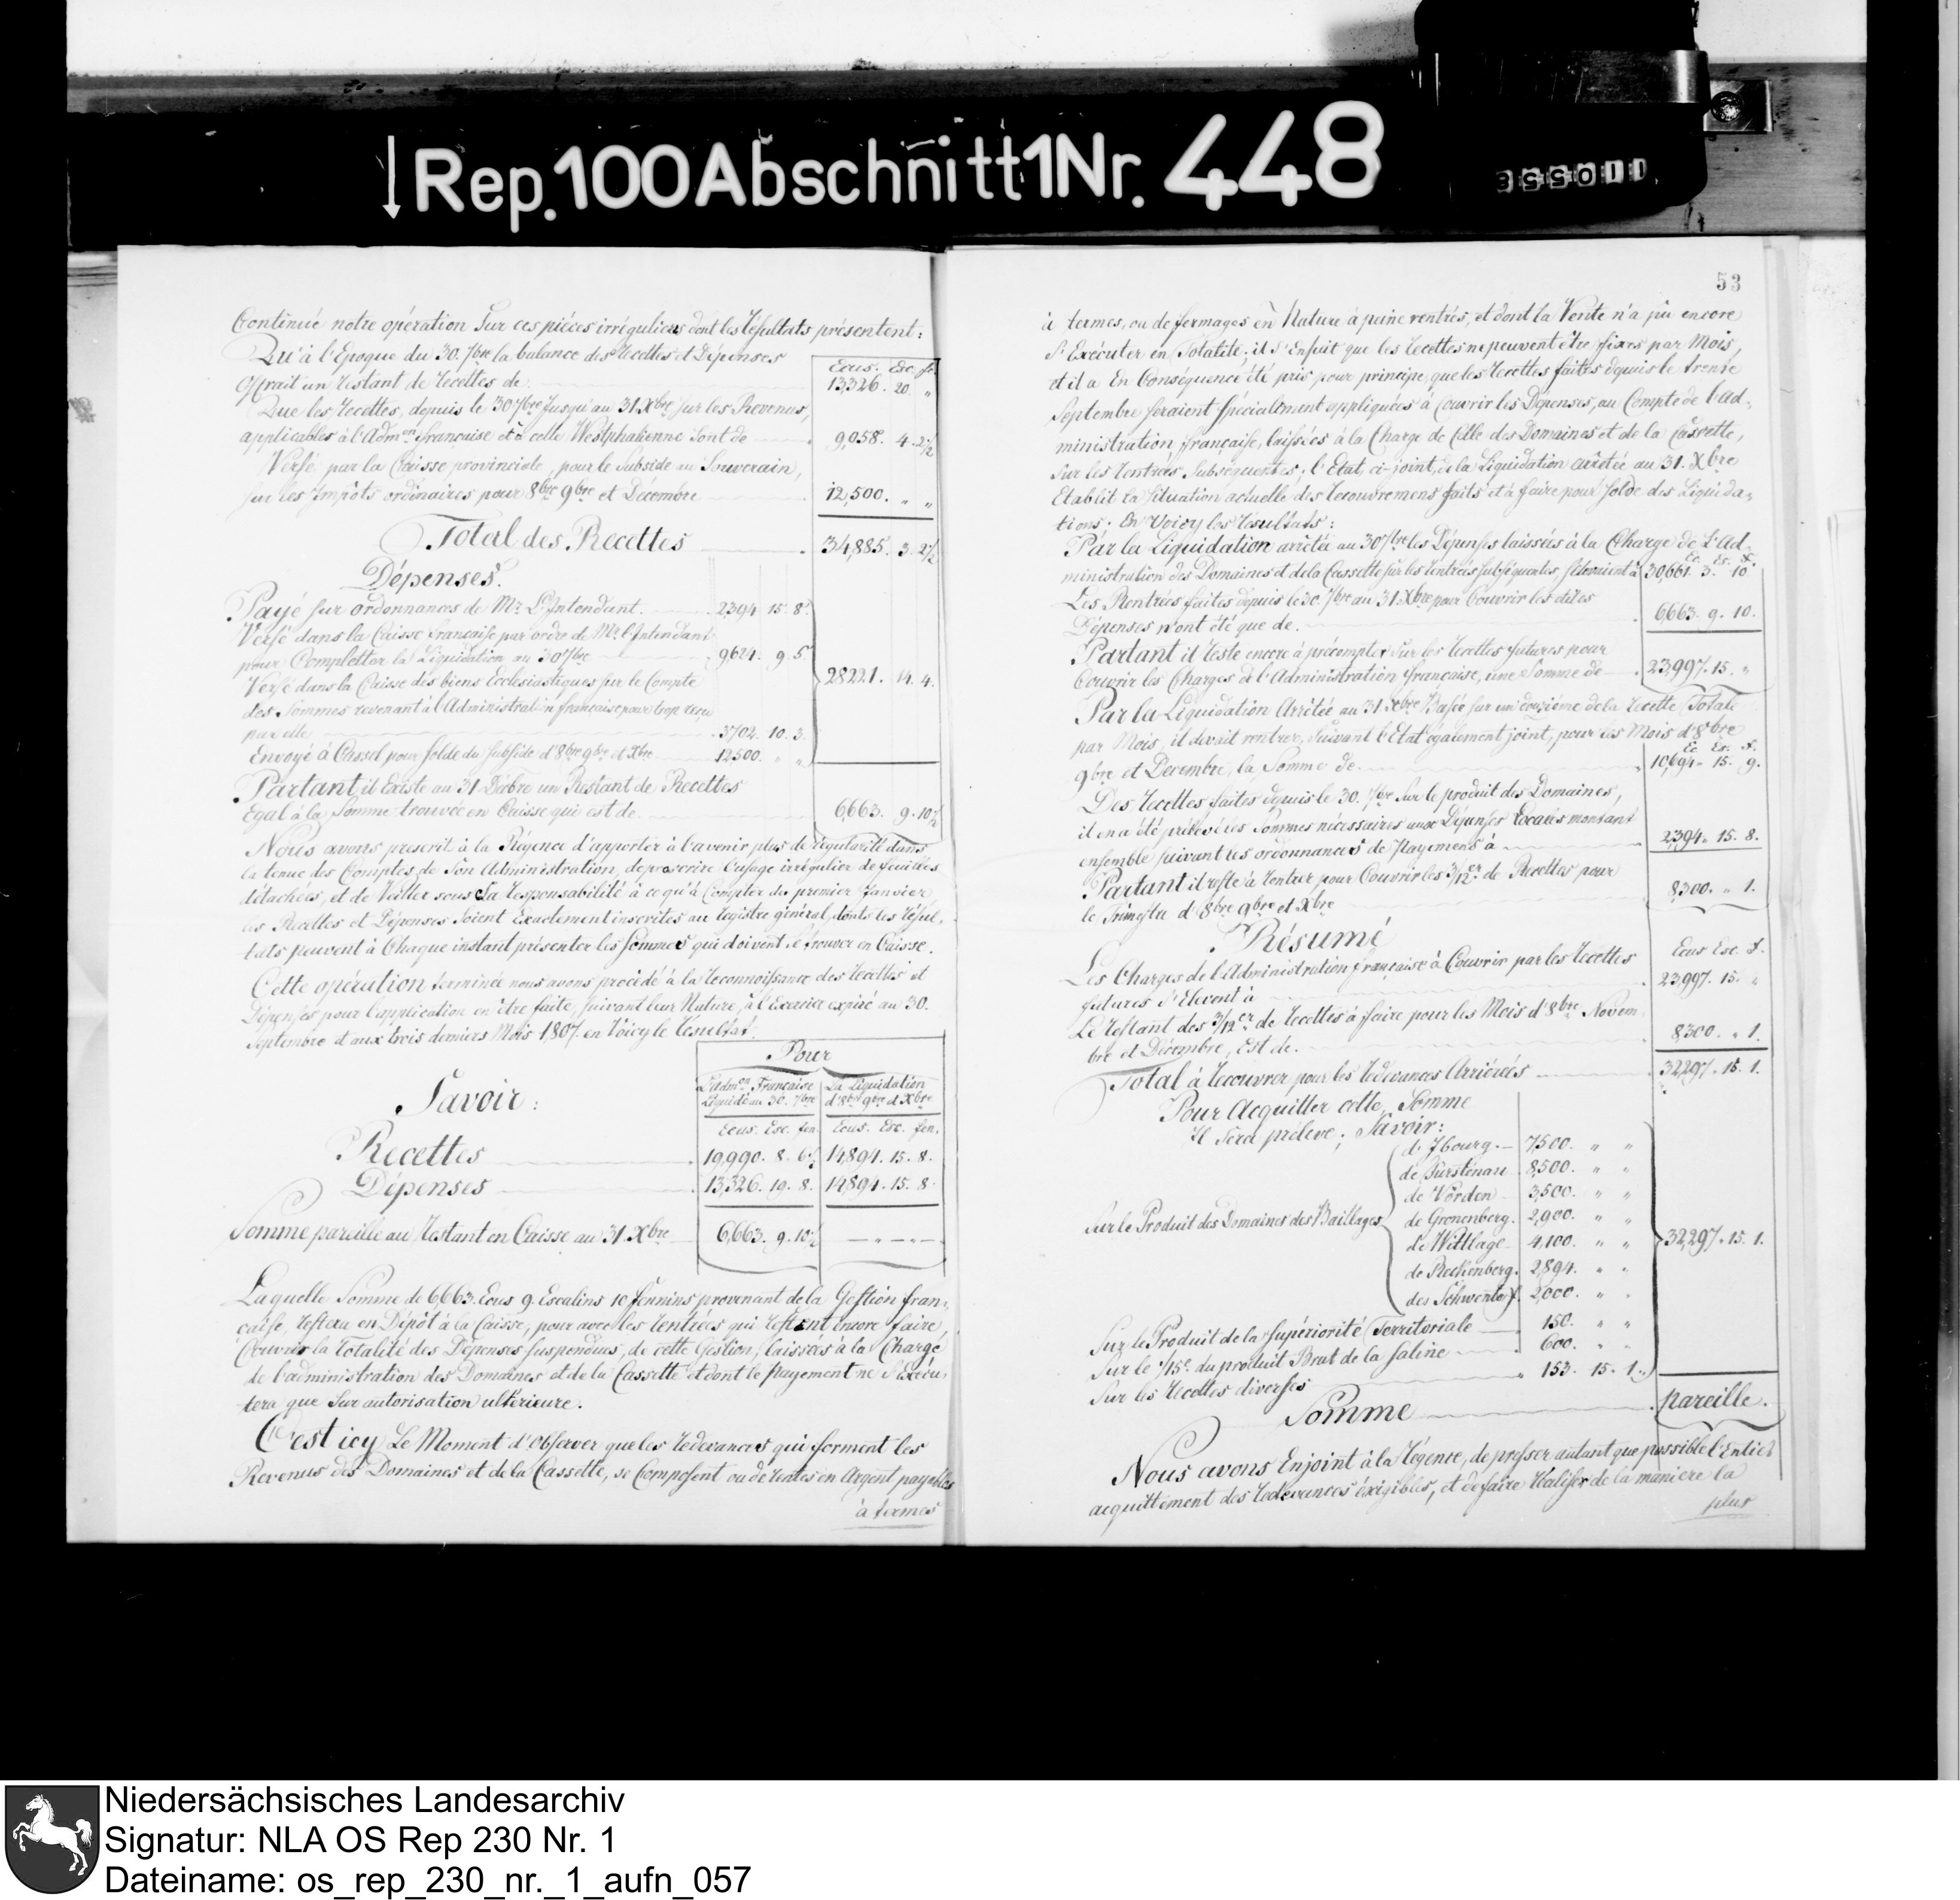 ↓Rep.100Abschnitt1Nr.448
110558
Continué notre opération Sur ces pièces irrégulieres dont les résultats présentent:
Qu'à l'Epoque du 30. 7bre la balance des recettes et Dépenses
Ecus. Esc. f.
offrait un restant de recettes de 13,326. 20. "
Que les recettes, depuis le 30 7bre Jusqu'au 31 Xbre sur les Revenus,
applicables à l'Admon française et à celle Westphalienne sont de 9,058. 4. 2½
Versé par la Caisse provinciale, pour le Subside au Souverain,
sur les Impôts ordinaires pour 8bre 9bre et Décembre 12,500. " "
Total des Recettes 34,885. 3. 2½
Dépenses.
Payé sur ordonnances de Mr. L'Intendant. 2394. 15. 8.
Versé dans la Caisse française par ordre de Mr. l'Intendant
pour Completter la Liquidation au 30 7bre 9624. 9. 5.
Versé dans la Caisse des biens Ecclésiastiques sur le Compte 28221. 14. 4.
des Sommes revenant à l'Administration française pour trop reçu
par elle 3702. 10. 3.
Envoyé à Cassel pour solde du subside d'8bre 9bre et Xbre 12500. " "
Partant il Existe au 31 Décbre un Restant de Recettes
Egal à la Somme trouvée en Caisse qui est de 6,663. 9. 10½
Nous avons prescrit à la Régence d'apporter à l'avenir plus de régularité dans
la tenue des Comptes de Son Administration, de proscrire l'usage irrégulier de feuilles
détachées, et de Veiller sous Sa responsabilité à ce qu'à Compter du premier Janvier
les Recettes et Dépenses soient Exactement inscrites au registre général, dont les résul-
tats peuvent à Chaque instant présenter les Sommes qui doivent se trouver en Caisse.
Cette opération terminée nous avons procédé à la reconnoissance des recettes et
Dépenses pour l'application en être faite, suivant leur Nature, à l'Exercice expiré au 30.
Septembre et aux trois derniers Mois 1,807. en Voicy le résultat.
Pour
Savoir:
L'admon Française | La Liquidation
Liquidée au 30. 7bre | d'8bre 9bre et Xbre
Ecus. Esc. fen. | Ecus. Esc. fen.
Recettes 19,990. 8. 6½ | 14,894. 15. 8.
Dépenses 13,326. 19. 8. | 14,894. 15. 8.
Somme pareille au restant en Caisse au 31. Xbre 6,663. 9. 10½ | — " — " —
Laquelle Somme de 6,663. Ecus 9. Escalins 10 fennins provenant de la Gestion fran-
caise, restera en Dépôt à la Caisse, pour avec les rentrées qui restent encore faire
Couvrir la Totalité des Dépenses suspendues, de cette Gestion, laissées à la Charge
de l'administration des Domaines et de la Cassette et dont le payement ne s'Exécu-
tera que Sur autorisation ultérieure.
C'est icy Le Moment d'Observer que les redevances qui forment les
Revenus des Domaines et de la Cassette, se Composent ou de rentes en Argent payables
à termes
53
à termes, ou de fermages en Nature à peine rentrés, et dont la Vente n'a pû encore
S'Exécuter en Totalité; il S'Ensuit que les recettes ne peuvent être fixes par Mois,
et il a En Conséquence été pris pour principe, que les recettes faites depuis le trente
Septembre seraient spécialement appliquées à Couvrir les Dépenses, au Compte de l'Ad-
ministration française, laissées à la Charge de Celle des Domaines et de la Cassette,
Sur les rentrées Subséquentes; l'Etat ci-joint, de la Liquidation arrêtée au 31. Xbre
Etablit la Situation actuelle des recouvremens faits et à faire pour solde des Liquida-
tions. En Voicy les résultats:
Par la Liquidation arrêtée au 30 7bre les Dépenses laissées à la Charge de L'Ad-
Ec. Es. f.
ministration des Domaines et de la Cassette sur les rentrées subséquentes, s'élevaient à 30,661. 3. 10.
Les Rentrées faites depuis le 30. 7bre au 31 Xbre pour Couvrir les dites
Dépenses n'ont été que de. 6,663. 9. 10.
Partant il reste encore à précompter Sur les recettes futures pour
Couvrir les Charges de l'Administration française, une Somme de 23,997. 15. "
Par la Liquidation Arrêtée au 31 Xbre Basée sur un douzième de la recette Totale
par Mois, il devait rentrer, suivant l'Etat également joint, pour les Mois d'8bre
Ec. Es. f.
9bre et Décembre, la Somme de. 10,694. 15. 9.
Des recettes faites depuis le 30. 7bre sur le produit des Domaines,
il en a été prélevé les Sommes nécessaires aux Dépenses Locales montant
ensemble suivant les ordonnances de payemens à 2,394. 15. 8.
Partant il reste à rentrer pour Couvrir les 3/12es de Recettes pour
le Trimestre d'8bre 9bre et Xbre 8,300. " 1.
Résumé
Ecus Esc. f.
Les Charges de l'Administration française à Couvrir par les recettes
futures S'Elevent à 23,997. 15. "
Le restant des 3/12es de recettes à faire pour les Mois d'8bre Novem-
bre et Décembre, Est de. 8,300. " 1.
Total à recouvrer pour les redevances Arriérées 32,297. 15. 1.
Pour Acquitter cette Somme
Il Sera prélevé; Savoir:
Sur le Produit des Domaines des Baillages
d'Jbourg. 7,500. " "
de Fürstenau 8,500. " "
de Vörden 3,500. " "
de Gronenberg. 2,900. " "
de Wittlage 4,100. " "
de Reckenberg. 2,894. " "
des Schwentorf. 2,000. " "
32,297. 15. 1.
Sur le Produit de la Supériorité Territoriale 150. " "
Sur le 1/15e. du produit Brut de la Saline 600. " "
Sur les recettes diverses 153. 15. 1.
Somme pareille.
Nous avons Enjoint à la régence, de presser autant que possible l'Entier
acquittement des redevances éxigibles, et de faire réaliser de la maniere la
plus
Niedersächsisches Landesarchiv
Signatur: NLA OS Rep 230 Nr. 1
Dateiname: os_rep_230_nr._1_aufn_057